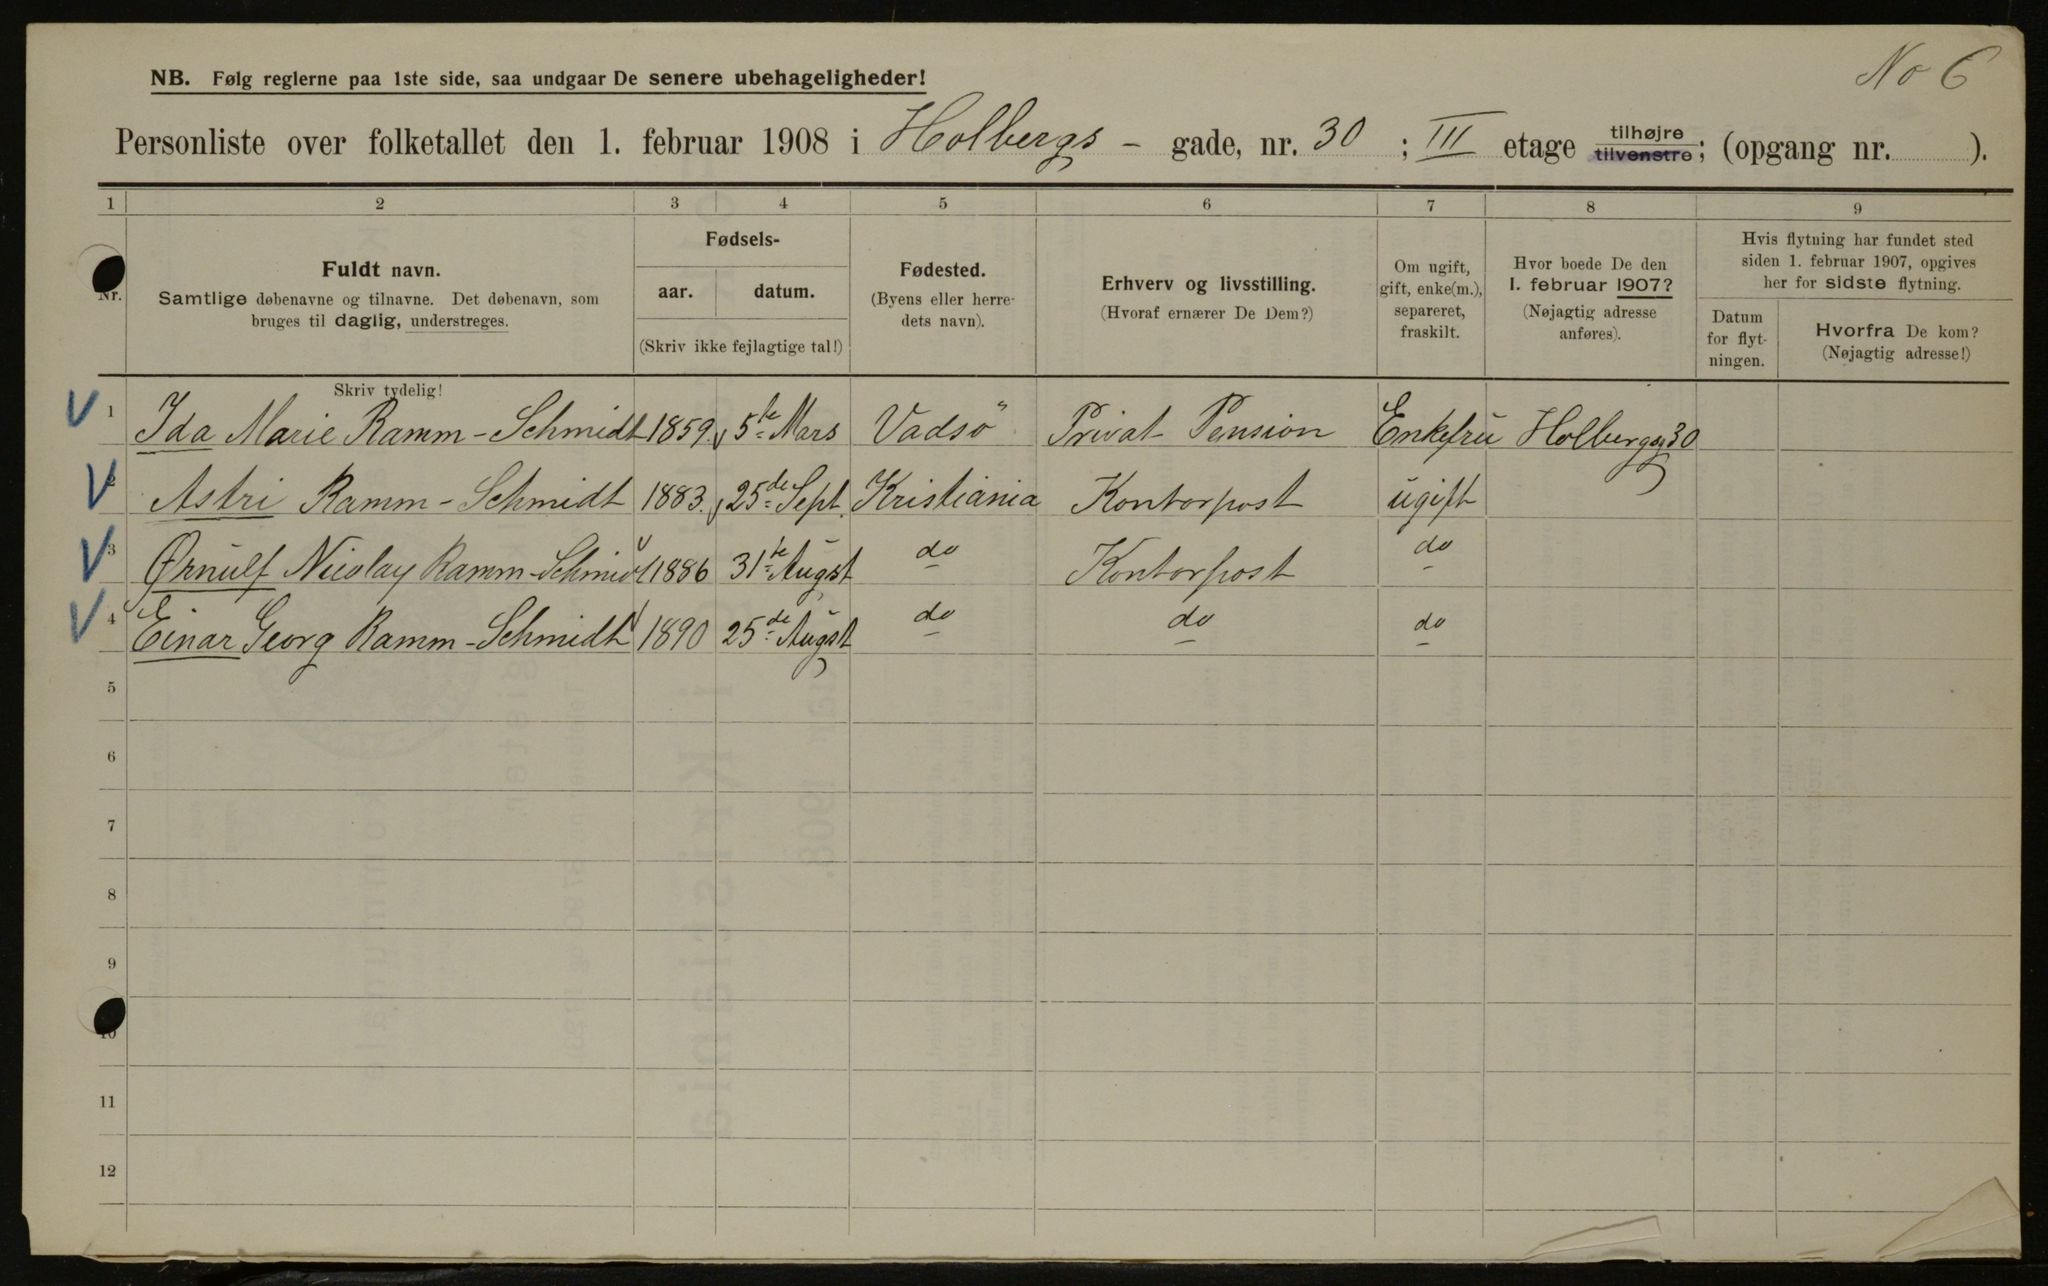 No 6
NB. Følg reglerne paa 1ste side, saa undgaar De senere ubehageligheder!
Personliste over folketallet den 1. februar 1908 i Holbergs - gade, nr. 30 ; III etage tilhøjre tilvenstre; (opgang nr. ).
1 2 3 4 5 6 7 8 9
Nr.
Fuldt navn.
Samtlige døbenavne og tilnavne. Det døbenavn, som
bruges til daglig, understreges.
Skriv tydelig!
Fødsels-
aar. datum.
(Skriv ikke fejlagtige tal!)
Fødested.
(Byens eller herre-
dets navn).
Erhverv og livsstilling.
(Hvoraf ernærer De Dem?)
Om ugift,
gift, enke(m.),
separeret,
fraskilt.
Hvor boede De den
1. februar 1907?
(Nøjagtig adresse
anføres).
Hvis flytning har fundet sted
siden 1. februar 1907, opgives
her for sidste flytning.
Datum
for flyt-
ningen.
Hvorfra De kom?
(Nøjagtig adresse!)
1 Ida Marie Ramm-Schmidt 1859. 5te Mars Vadsö Privat Pension Enkefrü Holbergsg 30
2 Astri Ramm-Schmidt 1883. 25de Sept. Kristiania Kontorpost ugift
3 Ørnulf Nicolay Ramm-Schmidt 1886 31te Augst do Kontorpost do
4 Einar Georg Ramm-Schmidt 1890 25de Augst do do do
5
6
7
8
9
10
11
12